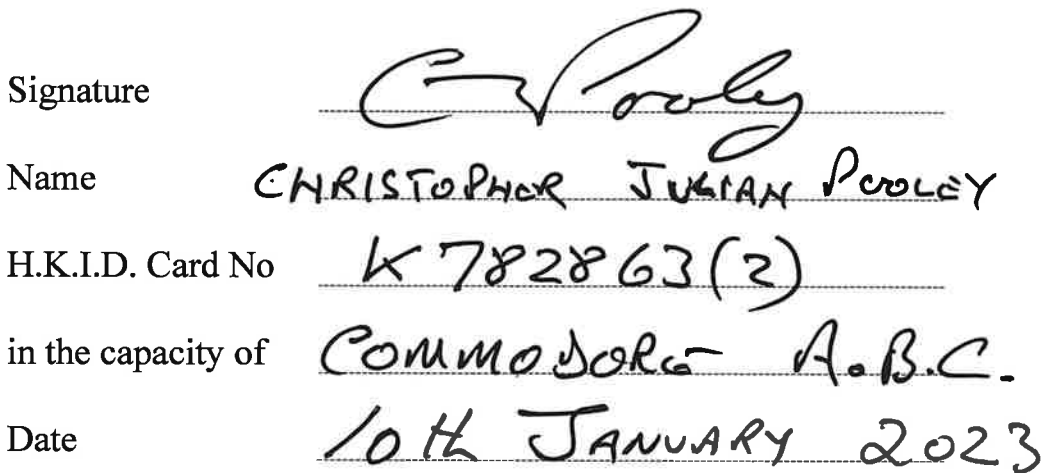 Signature C Pooley
Name CHRISTOPHER JULIAN POOLEY
H.K.I.D. Card No K782863(2)
in the capacity of COMMODORE A.B.C.
Date 10th JANUARY 2023